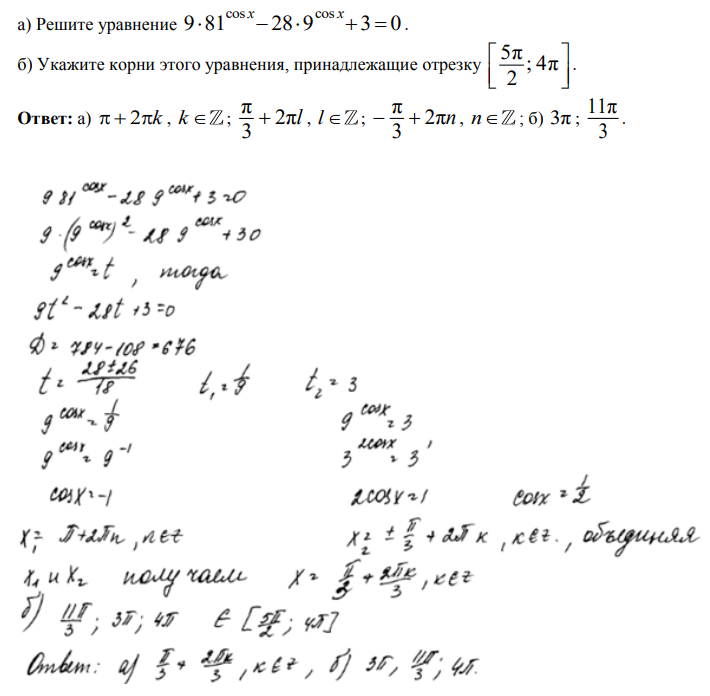 а) Решите уравнение 9·81^(cos x) − 28·9^(cos x) + 3 = 0.
б) Укажите корни этого уравнения, принадлежащие отрезку [5π/2; 4π].
Ответ: а) π + 2πk, k ∈ ℤ; π/3 + 2πl, l ∈ ℤ; −π/3 + 2πn, n ∈ ℤ; б) 3π; 11π/3.
9 81^(cosx) - 28 9^(cosx) + 3 = 0
9·(9^(cosx))^2 - 28 9^(cosx) + 30
9^(cosx) = t, тогда
9t² - 28t + 3 = 0
D = 784 - 108 = 676
t = (28 ± 26)/18 t₁ = 1/9 t₂ = 3
9^(cosx) = 1/9 9^(cosx) = 3
9^(cosx) = 9^(-1) 3^(2cosx) = 3^1
cosx = -1 2cosx = 1 cosx = 1/2
x₁ = π + 2πn, n∈z x₂ = ± π/3 + 2πk, k∈z., объединяя
x₁ и x₂ получаем x = π/3 + 2πk/3, k∈z
б) 11π/3; 3π; 4π ∈ [5π/2; 4π]
Ответ: а) π/3 + 2πk/3, k∈z, б) 3π, 11π/3; 4π.